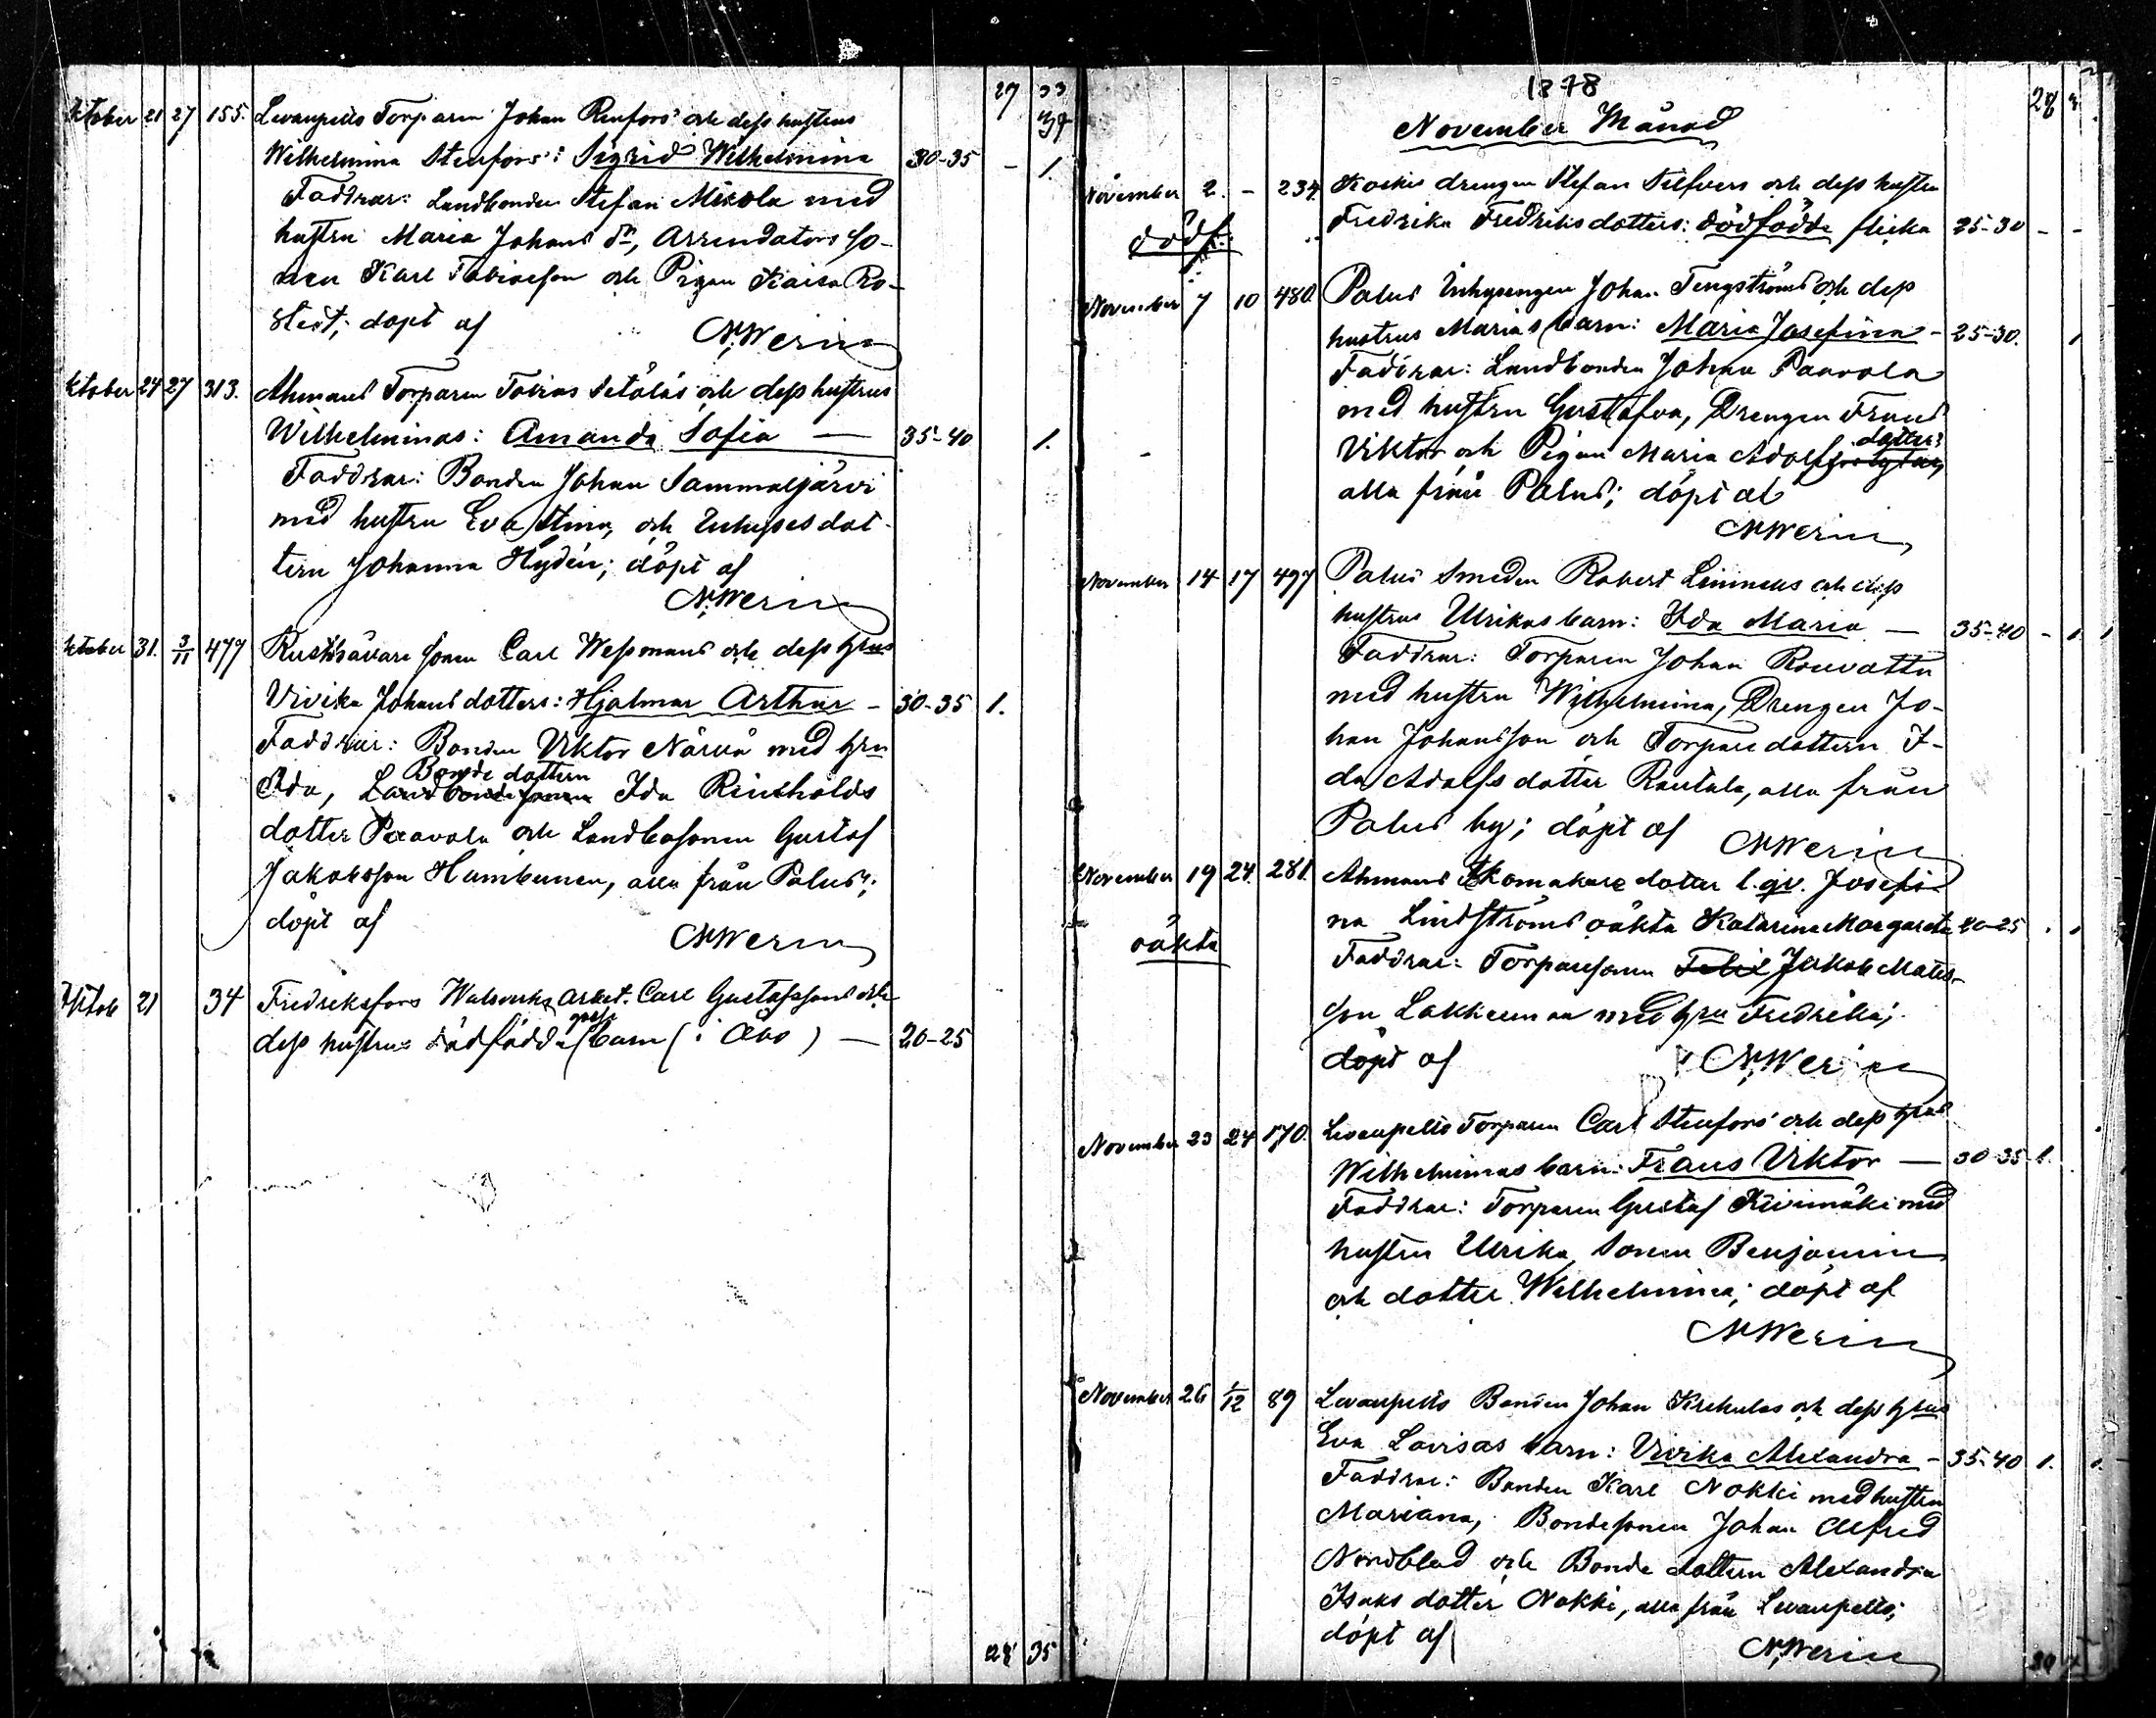 27 33
October 21 27 155. Levanpelto Torparen Johan Renfors och dess hustrus
Wilhelmina Stenfors: Sigrid Wilhelmina 30-35 - 1.
Faddrar: Landbonden Stefan Mikola med
hustru Maria Johans dr, Arrendators so-
nen Karl Tobiasson och Pigan Kaisa Ro-
stedt; döpt af
N. Werin
October 24 27 313. Ahmaus Torparen Tobias Setäläs och dess hustrus
Wilhelminas: Amanda Sofia — 35-40 1.
Faddrar: Bonden Johan Sammaljärvi
med hustru Eva Stina, och Inhyses dot-
tern Johanna Hydén; döpt af
N. Werin
October 31. 3/11 477 Rusthållare sonen Carl Wessmans och dess hrus
Vivika Johans dotters: Hjalmar Arthur - 30-35 1.
Faddrar: Bonden Viktor Närvä med hru
Bonde dottern
Ida, Landbondesonen Ida Reinholds
dotter Paavola och Landbosonen Gustaf
Jakobsson Humbunen, alla från Palus;
döpt af
N Werin
Oktob 21 34 Fredriksfors Walsverks arbet. Carl Gustafssons och
gosse
dess hustrus dödfödda barn (i Åbo) — 20-25
28 35
1878
28
November Månad
November 2. - 234. Koskis drengen Stefan Silfvers och dess hustru
Fredrika Fredriks dotters: dödfödde flicka 25-30 - -
dödf.
November 7 10 480. Palus Inhysengen Johan Tengströms och dess
hustrus Marias barn: Maria Josefina - 25-30. 1
Faddrar: Landbonden Johan Paavola
med hustru Gustafva, Drengen Frans
dotter
Viktor och Pigan Maria Adolfs
alla från Palus; döpt af
N Werin
November 14 17 497 Palus Smeden Robert Linneus och dess
hustrus Ulrikas barn: Ida Maria — 35-40 - 1. 1
Faddrar: Torparen Johan Rouvattu
med hustru Wilhelmina, Drengen Jo-
han Johansson och Torpare dottern I-
da Adolfs dotter Rautala, alla från
Palus by; döpt af
N Werin
November 19 24. 281. Ahmaus Skomakare dotter l. qv. Josefi-
na Lindströms oäkta Katarina Margareta 20-25 1
oäkta
Faddrar: Torparesonen Felix Jakob Mats-
son Lakkeunna med hru Fredrika;
döpt af
N. Werin
November 23 24 170. Levanpelto Torparen Carl Stenfors och dess hrus
Wilhelminas barn: Frans Viktor — 30-35 1.
Faddrar: Torparen Gustaf Kivimäki med
hustru Ulrika, Sonen Benjamin
och dotter Wilhelmina; döpt af
N Werin
November 26 1/12 89 Levanpelto Bonden Johan Krekulas och dess hrus
Eva Lovisas barn: Vivika Alexandra - 35-40 1. 1.
Faddrar: Bonden Karl Nokki med hustru
Mariana, Bondesonen Johan Alfred
Nordblad och Bonde dottern Alexandra
Isaks dotter Nokki, alla från Levanpelto;
döpt af
N. Werin